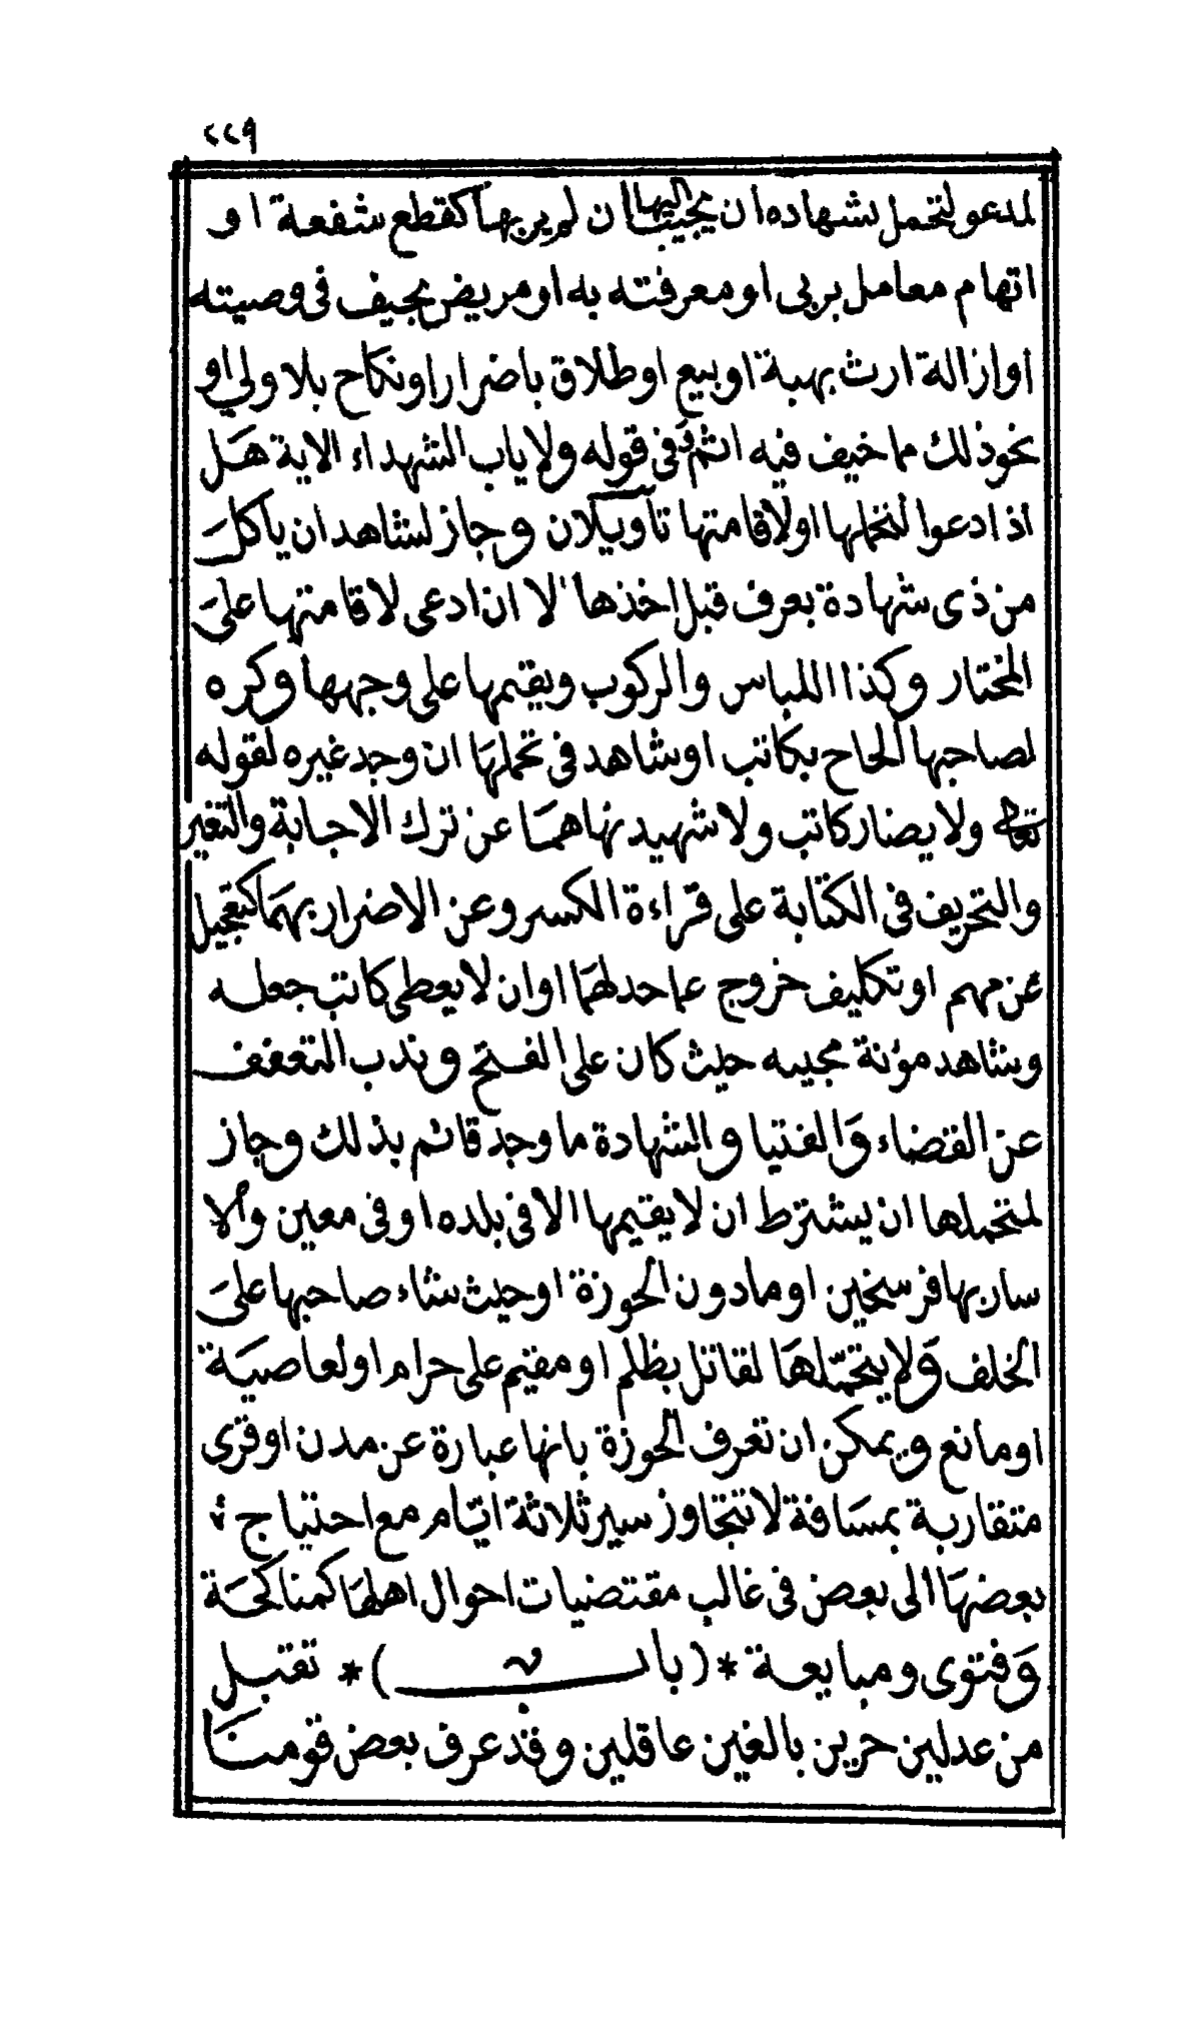 ٢٢٩
لمدعو لتحمل بشهاده ان يجيب اليها ان لم يربها كقطع شفعة او
اتهام معامل بربى او معرفته به او مريض بحيف فى وصيته
او ازالة ارث بهبة او بيع او طلاق باضرار او نكاح بلا ولي او
نحو ذلك مما خيف فيه اثم وَفى قوله ولا ياب الشهداء الاية هَل
اذا دعوا لتحملها او لاقامتها تاويلان وجاز لشاهد ان ياكلَ
من ذى شهادة بعرف قبل اخذها لا ان ادعى لاقامتها علىَ
المختار وكذا اللباس والركوب ويقيمها على وجهها وكره
لصاحبها الحاح بكاتب او شاهد فى تحملهَا ان وجد غيره لقوله
تعالى ولا يضار كاتب ولا شهيد نهاهمَا عن ترك الاجابة والتغير
والتحريف فى الكتابة على قراءة الكسر وعن الاضرار بهمَا كتعجيل
عن مهم او تكليف خروج عما حد لهمَا او ان لا يعطى كاتب جعله
وشاهد مؤنة مجيبه حيث كان على الفتح وندب التعفف
عن القضاء وَالفتيا والشهادة ما وجد قائم بذلك وجاز
لمتحملها ان يشترط ان لا يقيمها الا فى بلده او فى معين والا
سار بها فرسخين او ما دون الحوزة او حيث شاء صاحبها علىَ
الخلف وَلا يتحمّلهَا لقاتل بظلم او مقيم على حرام او لعاصيَة
او مانع ويمكن ان تعرف الحوزة بانها عبارة عن مدن او قرى
متقاربة بمسَافة لا تتجاوز سير ثلاثة ايّام مع احتياج
بعضهَا الى بعض فى غالب مقتضيات احوال اهلهَا كمناكحَة
وَفتوى ومبايعة * (باب) * تقبل
من عدلين حرين بالغين عاقلين وقد عرف بعض قومنَا